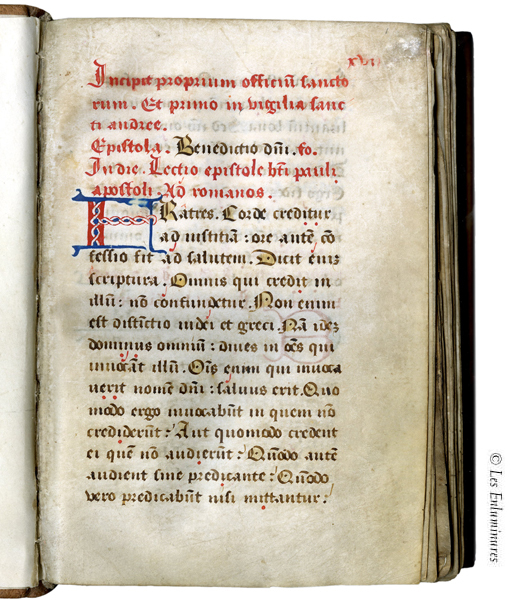 xvi
Incipit proprium officiū sancto
rum. Et primo in vigilia sanc
ti andree.
Epistola. Benedictio dñi. fo.
In die. Lectio epistole bt̄i pauli
apostoli. Ad romanos.
FRatres. Corde creditur
ad iustitiā: ore autē cō
fessio fit ad salutem. Dicit eniz
scriptura. Omnis qui credit in
illū: nō confundetur. Non enim
est distinctio iudei et greci. Nā idez
dominus omniū: dives in oēs qui
invocāt illū. Oīs enim qui invoca
verit nomē dñi: salvus erit. Quo
modo ergo invocabūt in quem nō
crediderūt? Aut quomodo credent
ei quē nō audierūt? Quōdo autē
audient sine predicante? Quōdo
vero predicabūt nisi mittantur?
© Les Enluminures